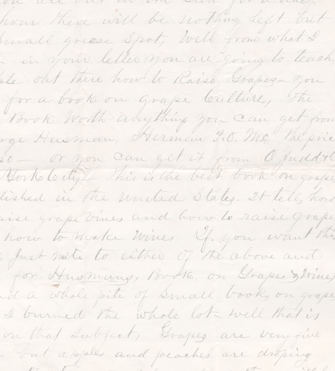 whom there will be nothing left but
small grease spot, Well from what I
in your letter you are going to teach
out there how to Raise Grapes – you
for a book on Grape Culture, The
Book Worth anything you can get from
Husman, Herman P.O. Mo. the price
or you can get it from O. Judd &
York City. This is the best book on grape
in the United States. It tells how
raise grape vines and how to raise grapes
how to make Wines If you want the
just write to either of the above and
for Husmans Book on Grapes & Wines
a whole pile of small books on grape
I burned the whole lot – well that is
on that subject, Grapes are very fine
but apples and peaches are droping